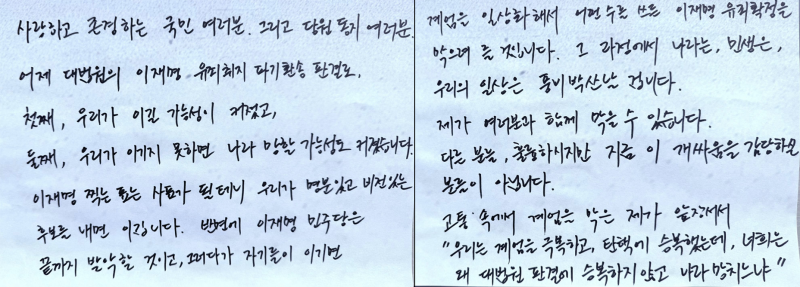 사랑하고 존경하는 국민 여러분. 그리고 당원 동지 여러분.
어제 대법원의 이재명 유죄취지 파기환송 판결로,
첫째, 우리가 이길 가능성이 커졌고,
둘째, 우리가 이기지 못하면 나라 망할 가능성도 커졌습니다.
이재명 찍는 표는 사표가 될테니 우리가 명분있고 비전있는
후보를 내면 이깁니다. 반면에 이재명 민주당은
끝까지 발악할 것이고, 그러다가 자기들이 이기면
계엄을 일상화해서 어떤 수를 쓰든 이재명 유죄확정을
막으려 들 것입니다. 그 과정에서 나라는, 민생은,
우리의 일상은 풍비박산날 겁니다.
제가 여러분과 함께 막을 수 있습니다.
다른 분들, 훌륭하시지만 지금 이 개싸움을 감당하실
분들이 아닙니다.
고통 속에서 계엄을 막은 제가 앞장서서
"우리는 계엄을 극복하고, 탄핵에 승복했는데, 너희는
왜 대법원 판결에 승복하지 않고 나라 망치느냐"